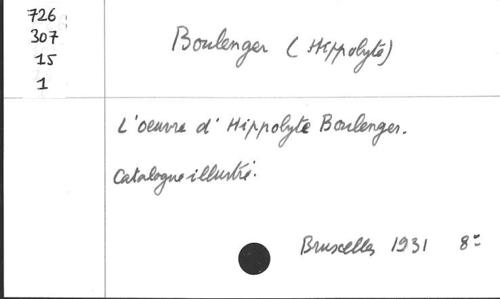 726
307
15
1
Boulenger (Hippolyte)
L'oeuvre d'Hippolyte Boulenger.
Catalogue illustré.
Bruxelles 1931 8°